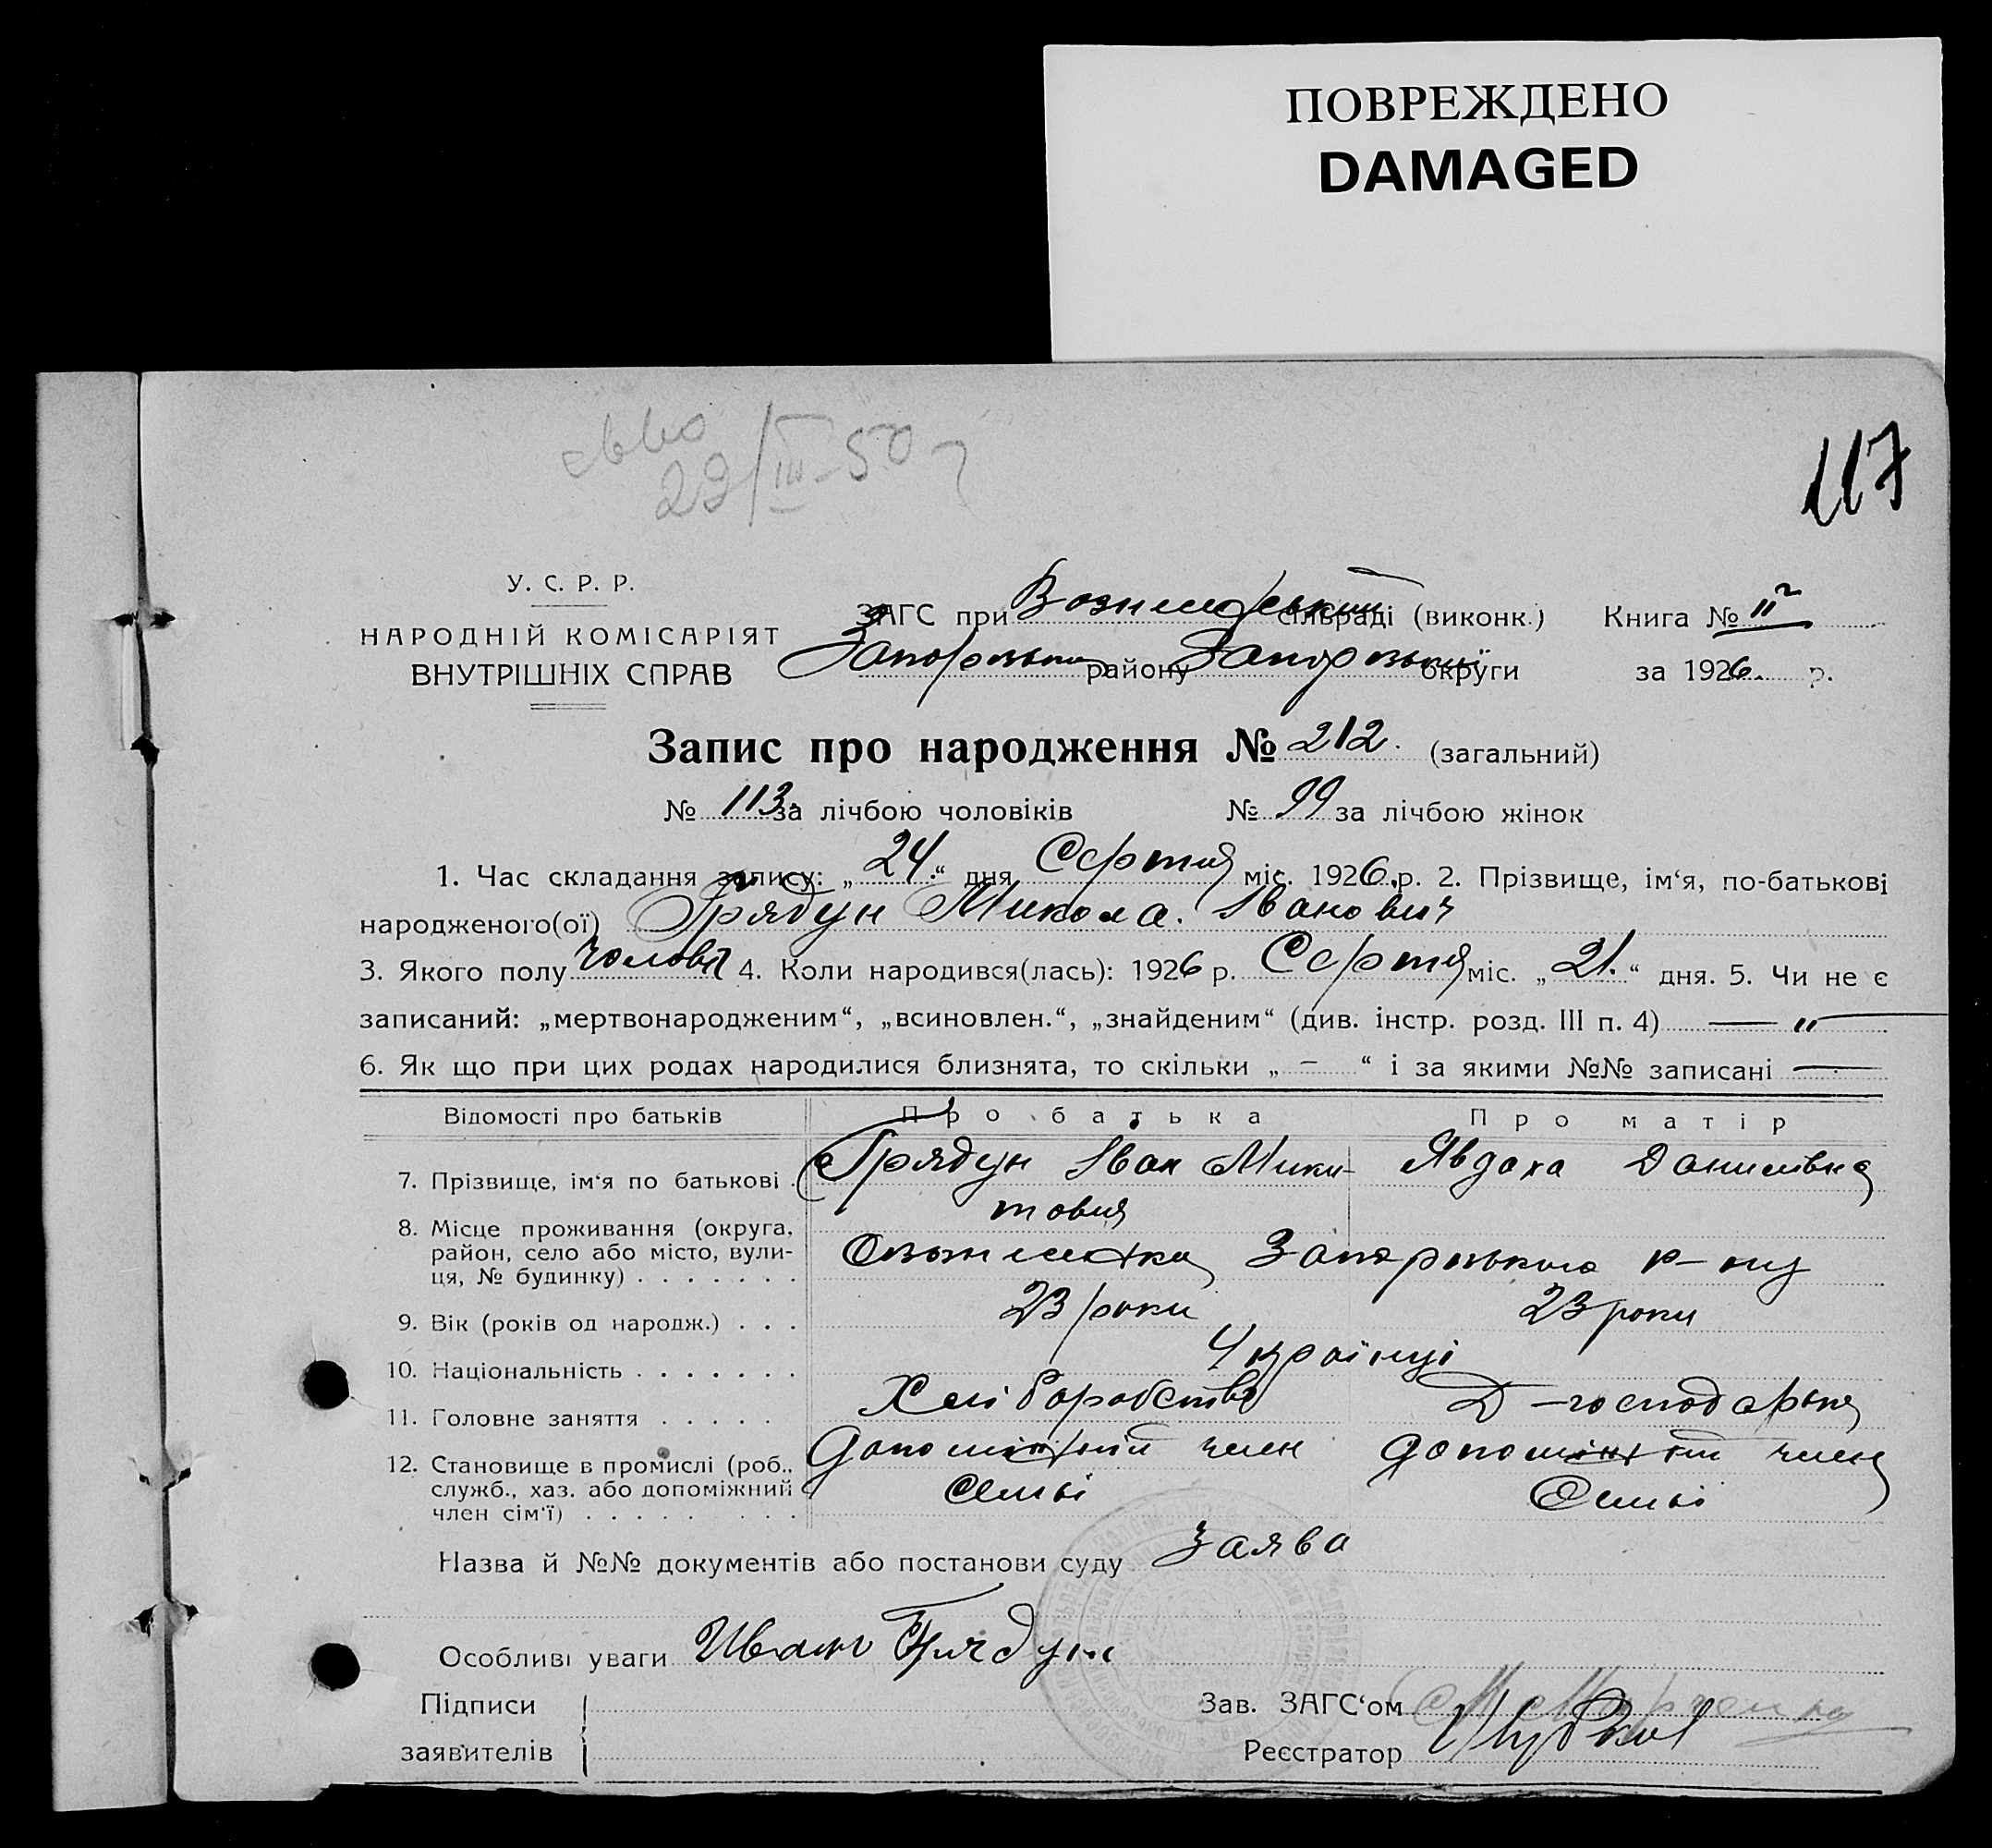 ПОВРЕЖДЕНО
DAMAGED
29/III-50 г
117
У. С. Р. Р.
НАРОДНІЙ КОМІСАРІЯТ
ВНУТРІШНІХ СПРАВ
ЗАГС при сільраді (виконк.) Книга № II
району округи за 1926. р.
Запис про народження № 212. (загальний)
№ 113. за лічбою чоловіків № 99 за лічбою жінок
1. Час складання запису: „24.“ дня Серпня міс. 1926.р. 2. Прізвище, ім‘я, по-батькові
народженого(ої) Грядун Микола. Іванович
3. Якого полу чолов 4. Коли народився(лась): 1926 р. Серпня міс. „21.“ дня. 5. Чи не є
записаний: „мертвонародженим“, „всиновлен.“, „знайденим“ (див. інстр. розд. III п. 4) — „
6. Як що при цих родах народилися близнята, то скільки „ – “ і за якими №№ записані —
Відомості про батьків Про батька Про матір
7. Прізвище, ім‘я по батькові . Грядун Іван Мики- Явдоха Данилівна
тович
8. Місце проживання (округа, район, село або місто, вули-ця, № будинку) . . . . . . . Запорізького р-ну
9. Вік (років од народж.) . . . 23 роки 23 роки
10. Національність . . . . . . . Українці
11. Головне заняття . . . . . Хліборобство Д-господарка
12. Становище в промислі (роб., служб., хаз. або допоміжний член сім‘ї) . . . . . . . . допоміжний член семьі допоміжний член семьі
Назва й №№ документів або постанови суду Заява
Особливі уваги Иван Грядун
Підписи
заявителів
Зав. ЗАГС‘ом
Реєстратор